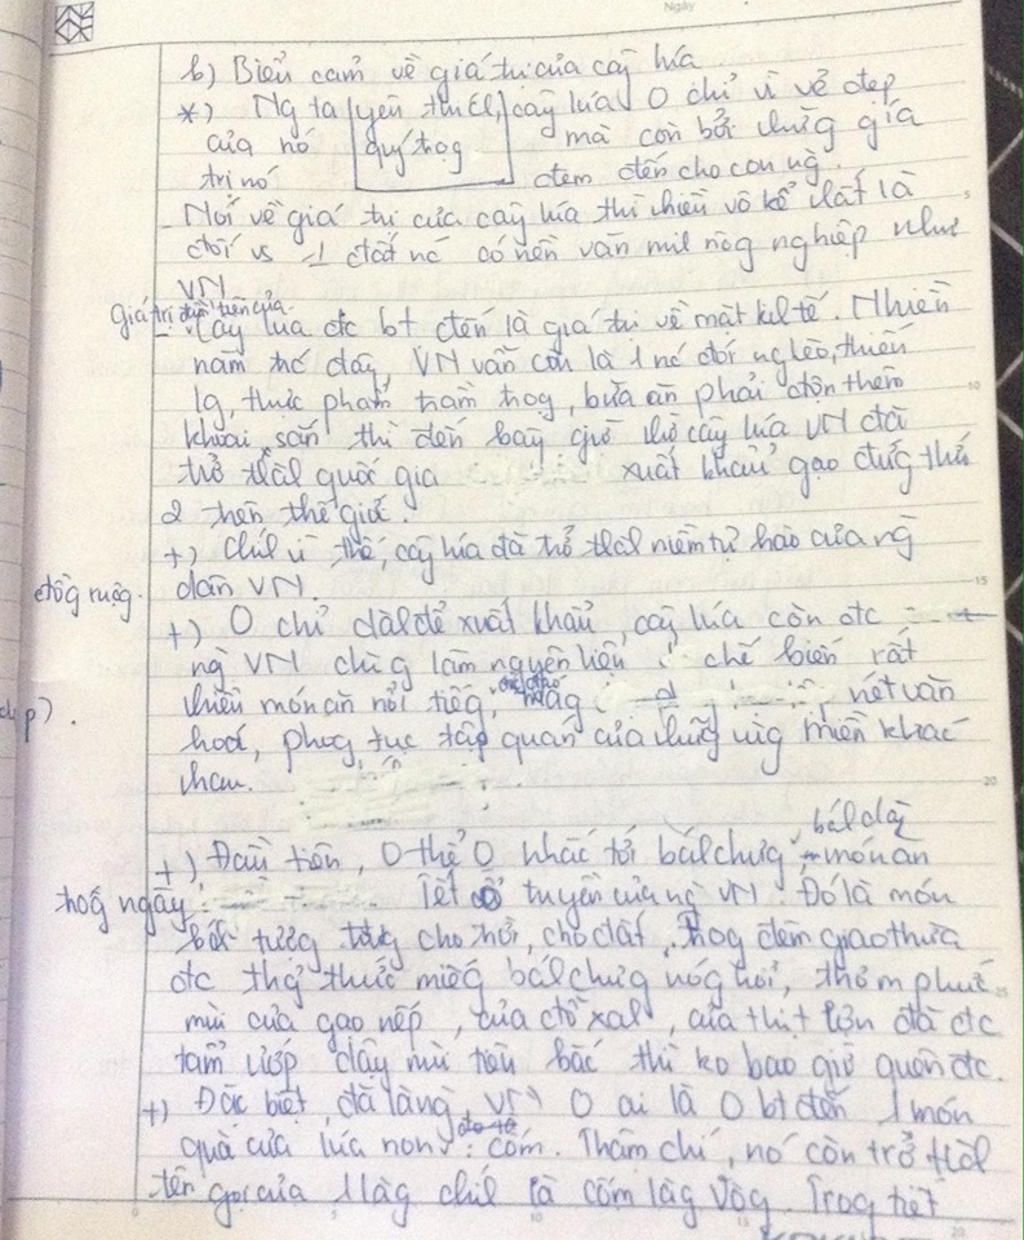 Ngày
b) Biểu cảm về giá trị của cây lúa
*) Ng ta yêu thíc, cây lúa 0 chỉ vì vẻ đẹp
của nó quý trọg mà còn bởi nhữg giá
trị nó đem đến cho con ng`.
Nói về giá trị của cây lúa thì nhiều vô kể nhất là
đối vs 1 đất nc có nền văn mil nôg nghiệp như
VN
Giá trị đầu tiên của
- cây lúa đc bt đến là giá trị về mặt kil tế. Nhiều
năm trc đây, VN vẫn còn là 1 nc đói nghèo, thiếu
lg, thực phẩm trầm trọg, bữa ăn phải độn thêm
khoai, sắn thì đến bây giờ nhờ cây lúa VN đã
trở thàl quốc gia xuất khẩu gạo đứg thứ
2 trên thế giới.
+) Chíl vì thế, cây lúa đã trở thàl niềm tự hào của ng`
dân VN.
đồg ruộg.
+) 0 chỉ dàl để xuất khẩu, cây lúa còn đc
ng` VN dùg làm nguyên liệu chế biến rất
nhiều món ăn nổi tiếg, mag nét văn
hoá, phog tục tập quán của nhữg vùg miền khác
nhau.
bál dày
+) Đầu tiên, 0 thể 0 nhắc tới bál chưg, món ăn
trog ngày Tết cổ truyền của ng` VN. Đó là món
bál tượg trưg cho trời, cho đất. Trog đêm giao thừa
đc thg thức miếg bál chưg nóg hổi, thơm phức
mùi của gạo nếp, của đỗ xal, của thịt lợn đã đc
tẩm ướp dậy mùi tiêu bắc thì ko bao giờ quên đc.
+) Đặc biệt, đã là ng` VN 0 ai là 0 bt đến 1 món
quà của lúa non: cốm. Thậm chí, nó còn trở thàl
tên gọi của 1 làg chíl là cốm làg Vòg. Trog tiết